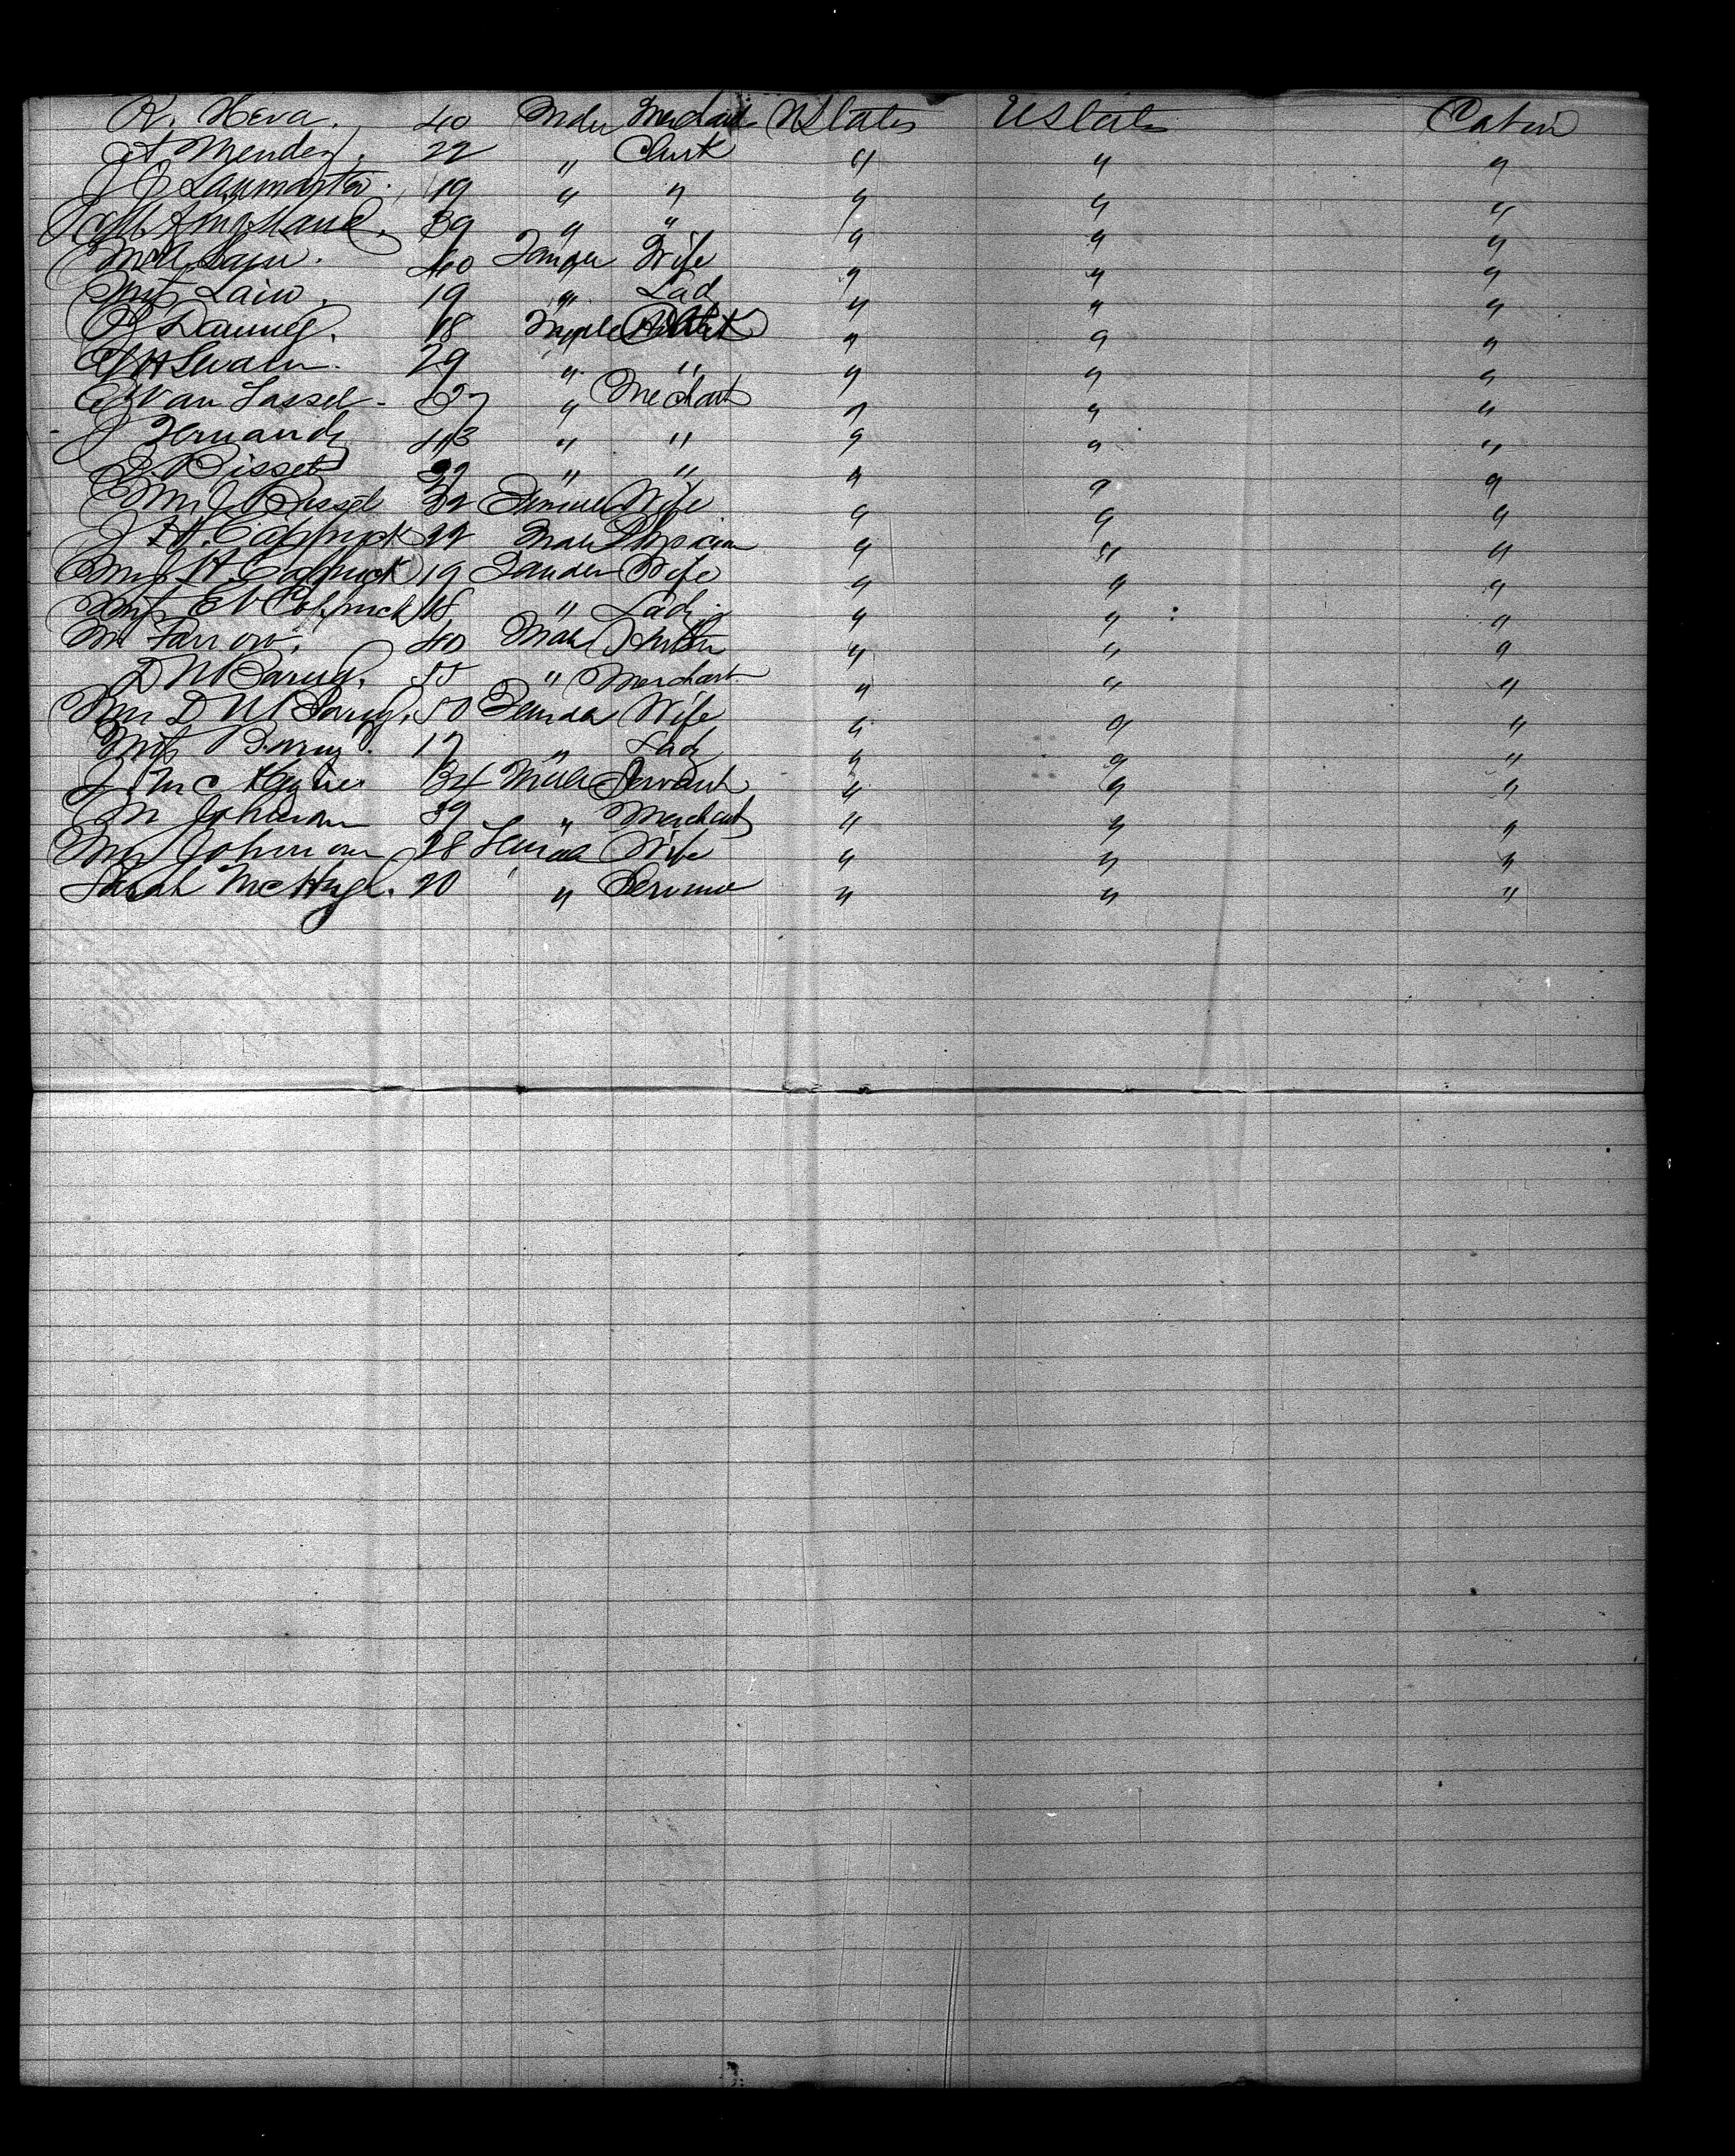 R. Heva. 40 Male Merchant UStates UStates Cabin
A Mendez. 22 " Clerk " " "
J J Laymaster. 19 " " " " "
39 " " " " "
40 Female Wife " " "
Miss Lain. 19 " Lady " " "
18 Male " " "
H Swain. 29 " " " " "
Van Tassel - 27 " Merchant " " "
J Fernandz 43 " " " " "
J Bissel " " " " "
Mrs J Bissel 32 Female Wife " " "
J H. Coppuck 22 Male Physician " " "
Mrs J H. Coppuck 19 Female Wife " " "
Miss E V Coppuck 18 " Lady " " "
M Farrow. 40 Male " " "
D N Barry. 55 " Merchant " " "
Mrs D N Barry. 50 Female Wife " " "
Miss Barry. 17 " Lady " " "
J. Mc 34 Male Servant " " "
M Johnson 39 " Merchant " " "
Mrs Johnson 28 Female Wife " " "
Sarah McHugh. 20 " Servant " " "